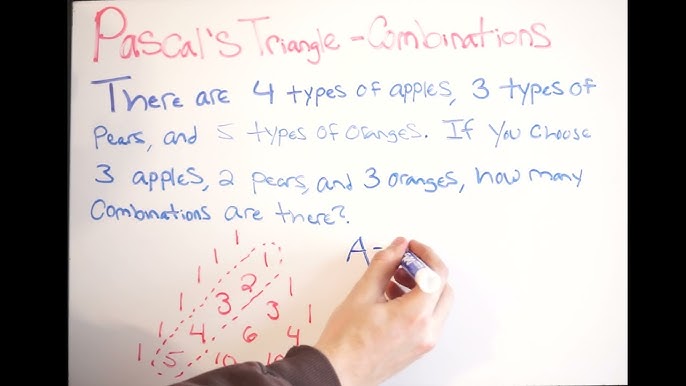 Pascal's Triangle - Combinations
There are 4 types of apples, 3 types of
Pears, and 5 types of oranges. If you choose
3 apples, 2 pears, and 3 oranges, how many
Combinations are there?
A-
1
1 1
1 2 1
1 3 3 1
1 4 6 4
1 5 10 10